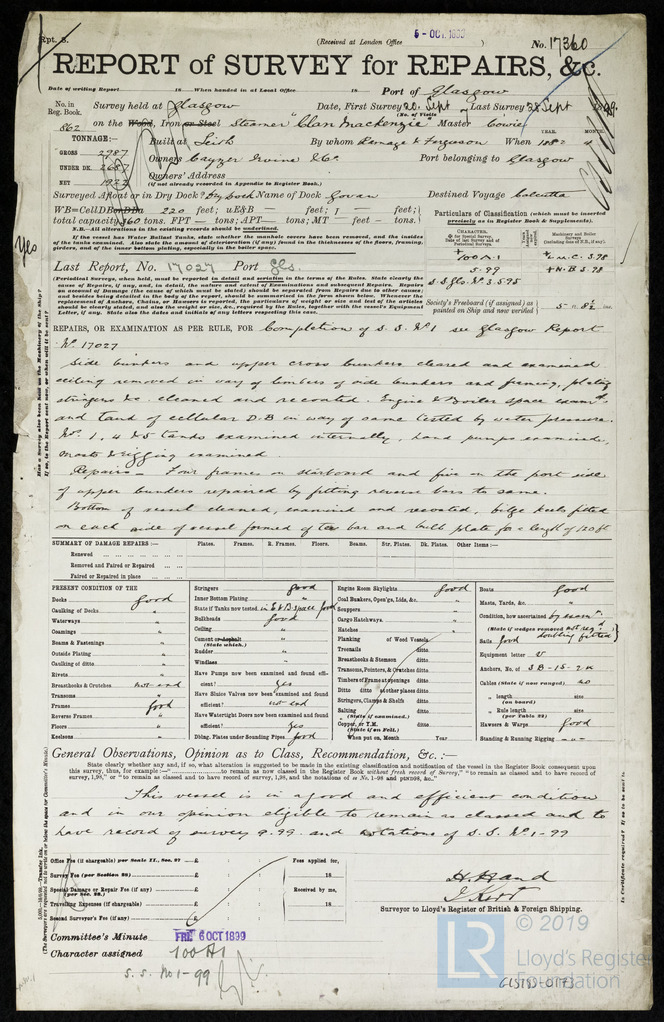 Rpt. 8.
(Received at London Office 5-OCT.1899 )
No. 17360
REPORT of SURVEY for REPAIRS, &c.
Date of writing Report 18 When handed in at Local Office 18 Port of Glasgow
No. in Reg. Book. Survey held at Glasgow Date, First Survey 20. Sept Last Survey 28 Sept 1899.
(No. of Visits
862 on the Wood, Iron or Steel Steamer "Clan Mackenzie" Master Cowie
TONNAGE:— Built at Leith By whom Ramage & Ferguson When 1882 4
YEAR. MONTH.
GROSS 2987 Owners Cayzer Irvine & Co. Port belonging to Glasgow
UNDER DK. 2687 Owners' Address
NET 1932 (if not already recorded in Appendix to Register Book.)
Surveyed Afloat or in Dry Dock? Dry Dock Name of Dock Govan Destined Voyage Calcutta
WB=CellDBorDBa 220 feet; uE&B — feet; f — feet;
total capacity 360 tons. FPT — tons; APT — tons; MT — feet — tons.
N.B.—All alterations in the existing records should be underlined.
If the vessel has Water Ballast Tanks, state whether the manhole covers have been removed, and the insides
of the tanks examined. Also state the amount of deterioration (if any) found in the thicknesses of the floors, framing,
girders, and of the inner bottom plating, especially in the boiler compartment.
Particulars of Classification (which must be inserted
precisely as in Register Book & Supplements).
100A1
5.99
S.S. Gls. No 3.5.95
L.M.C. 5.98
N.B 5.98
Last Report, No. 17027 Port Gls.
Periodical Surveys, when held, must be reported in detail and seriatim in the terms of the Rules. State clearly the
cause of Repairs, if any, and, in detail, the nature and extent of Examinations and subsequent Repairs. Repairs
on account of Damage (the cause of which must be stated) should be separated from Repairs due to other causes;
and besides being detailed in the body of the report, should be summarized in the form shewn below. Whenever the
replacement of Anchors, Chains, or Hawsers is reported, the particulars of weight or size and test of the articles
should be clearly stated, and also the weight or size, &c., required by the Rules, together with the vessel's Equipment
Letter, if any. State also the dates and initials of any letters respecting this case.
Society's Freeboard (if assigned) as painted on Ship and now verified 5 ft. 8½ ins.
Yes
REPAIRS, OR EXAMINATION AS PER RULE, FOR Completion of S.S. No 1 see Glasgow Report
No. 17027
Side bunkers and upper cross bunkers cleared and examined
ceiling removed in way of limbers of side bunkers and framing, plating
stringers &c. cleaned and recoated. Engine & Boiler space examd.
and tank of cellular D.B in way of same tested by water pressure.
No. 1, 4 & 5 tanks examined internally, hand pumps examined,
masts & rigging examined.
Repairs — Four frames on starboard and five on the port side
of upper bunkers repaired by fitting reverse bars to same.
Bottom of vessel cleaned, examined and recoated, bilge keels fitted
on each side of vessel formed of tee bar and bulb plate for a length of 120 ft
SUMMARY OF DAMAGE REPAIRS:— Plates. Frames. R. Frames. Floors. Beams. Str. Plates. Dk. Plates. Other Items:—
Renewed
Removed and Faired or Repaired
Faired or Repaired in place
PRESENT CONDITION OF THE
Decks Good
Caulking of Decks "
Waterways "
Coamings "
Beams & Fastenings "
Outside Plating "
Caulking of ditto "
Rivets "
Breasthooks & Crutches not end
Transoms "
Frames Good
Reverse Frames "
Floors "
Keelsons "
Stringers Good
Inner Bottom Plating "
State if Tanks now tested in E & B space good
Bulkheads Good
Ceiling "
Cement or Asphalt "
(State which.)
Rudder "
Windlass "
Have Pumps now been examined and found efficient? Yes
Have Sluice Valves now been examined and found efficient? not end
Have Watertight Doors now been examined and found efficient? Yes
Dblng. Plates under Sounding Pipes Good
Engine Room Skylights Good
Coal Bunkers, Open'gs, Lids, &c. "
Scuppers "
Cargo Hatchways "
Hatches "
Planking of Wood Vessels
Treenails ditto
Breasthooks & Stemson ditto
Transoms, Pointers, & Crutches ditto
Timbers of Frame at openings ditto
Ditto ditto at other places ditto
Stringers, Clamps & Shelfs ditto
Salting ditto
(State if examined.)
Copper, or Y.M. ditto
(State if on Felt.)
When put on, Month Year
Boats Good
Masts, Yards, &c. "
Condition, how ascertained by exam n.
(State if wedges removed not req'd)
Sails Good doubling fitted
Equipment letter V
Anchors, No. of 3B-1S-2K
Cables (State if now ranged) no
" length
(on board)
" Rule length
(per Table 22)
Hawsers & Warps Good
Standing & Running Rigging "
General Observations, Opinion as to Class, Recommendation, &c.:—
State clearly whether any, and if so, what alteration is suggested to be made in the existing classification and notification of the vessel in the Register Book consequent upon
this survey, thus, for example:—"to remain as now classed in the Register Book without fresh record of Survey," "to remain as classed and to have record of
survey, 1,98," or "to remain as classed and to have record of survey, 1,98, and the notations of ss. No. 1-98 and ND98, &c."
This vessel is in a good and efficient condition
and in our opinion eligible to remain as classed and to
have record of survey 9.99. and notations of S.S. No. 1-99
Office Fee (if chargeable) per Scale II., Sec. 27 £ : : Fees applied for,
Survey Fee (per Section 28) £ : : 18
Special Damage or Repair Fee (if any) £ : : Received by me,
(per Sec. 28).
Travelling Expenses (if chargeable) £ : : 18
Second Surveyor's Fee (if any) £
Surveyor to Lloyd's Register of British & Foreign Shipping.
Committee's Minute FRI. 6 OCT 1899
Character assigned 100A1
S.S. No 1-99
© 2019
LR
Lloyd's Register
Foundation